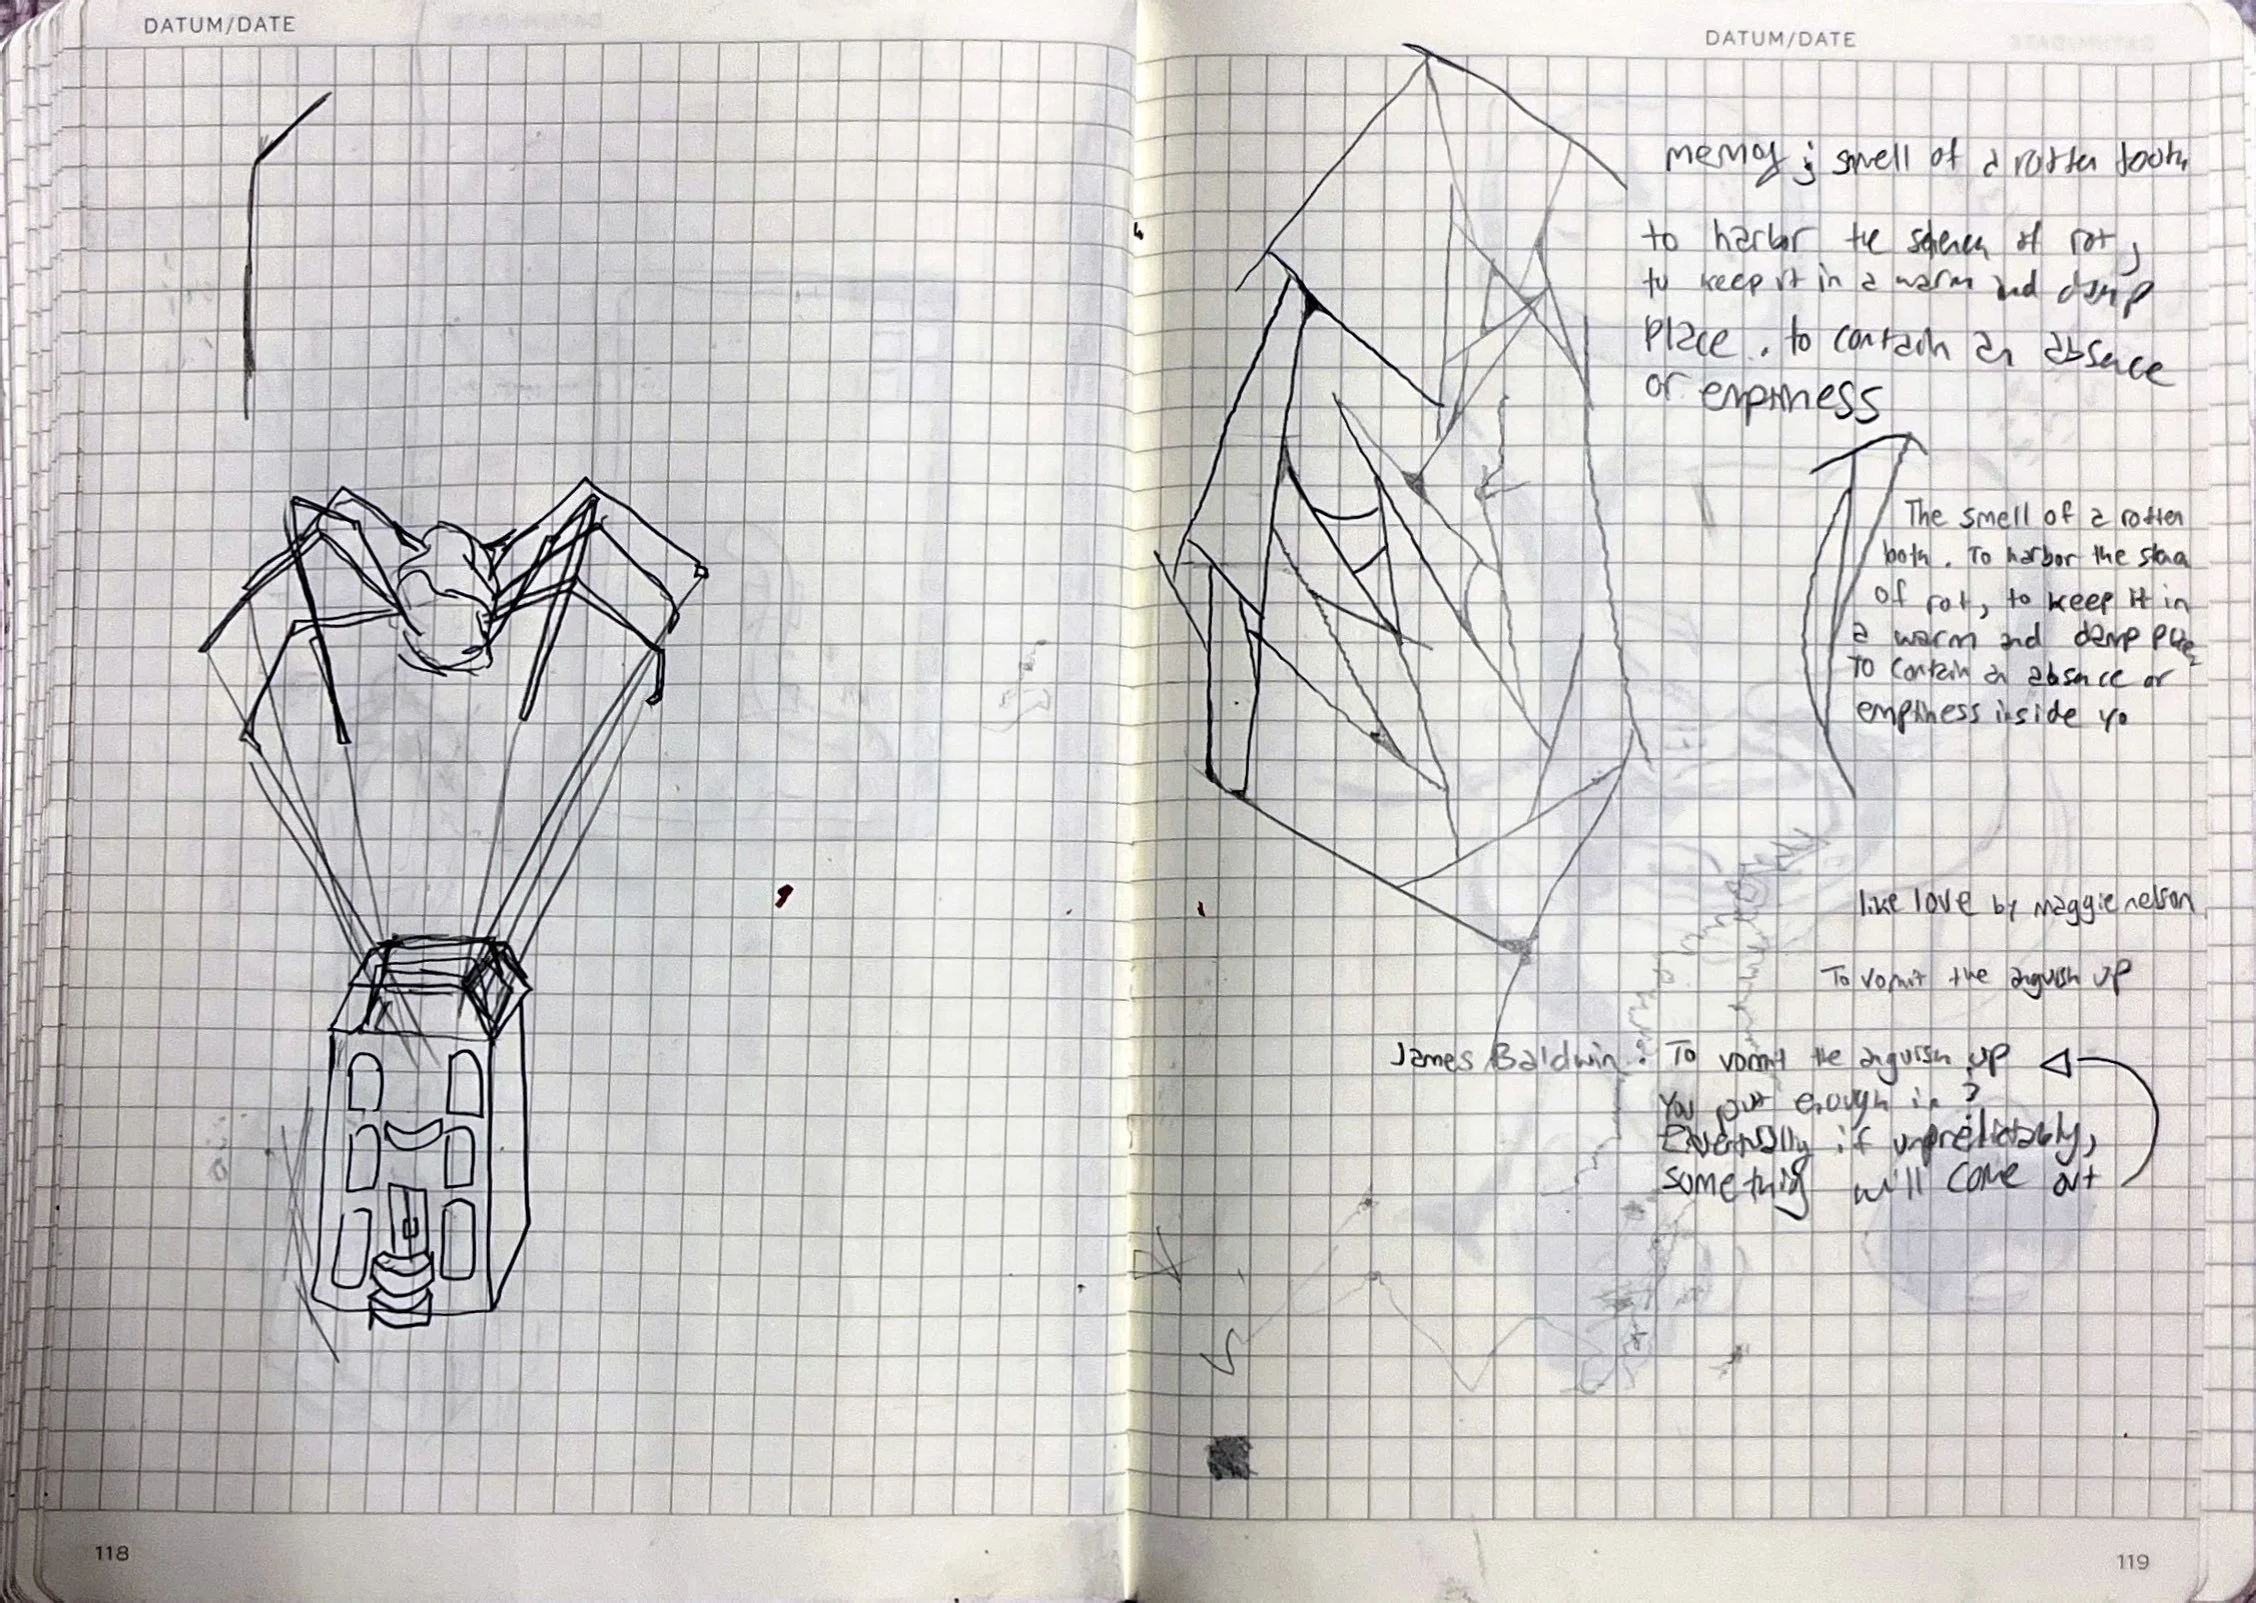 DATUM/DATE
DATUM/DATE
memory; smell of a rotten tooth
to harbor the of rot,
to keep it in a warm and damp
place. to contain an absence
or emptiness
The smell of a rotten
To harbor the
of rot, to keep it in
a warm and damp
To contain an absence or
emptiness inside yo
like love by maggie nelson
To vomit the anguish up
James Baldwin: To vomit the anguish up
You put enough in?
Eventually if unpredictably,
something will come out
118
119